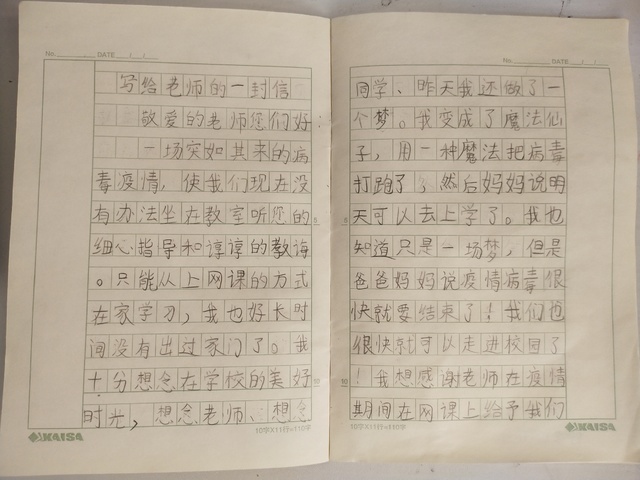 No. DATE / /
写给老师的一封信
敬爱的老师您们好:
一场突如其来的病
毒疫情，使我们现在没
有办法坐在教室听您的
细心指导和谆谆的教诲
。只能从上网课的方式
在家学习，我也好长时
间没有出过家门了。我
十分想念在学校的美好
时光，想念老师、想念
5
10
KAISA
10字×11行=110字
No. DATE / /
同学、昨天我还做了一
个梦。我变成了魔法仙
子，用一种魔法把病毒
打跑了，然后妈妈说明
天可以去上学了。我也
知道只是一场梦，但是
爸爸妈妈说疫情病毒很
快就要结束了！我们也
很快就可以走进校园了
！我想感谢老师在疫情
期间在网课上给予我们
5
10
10字×11行=110字
KAISA